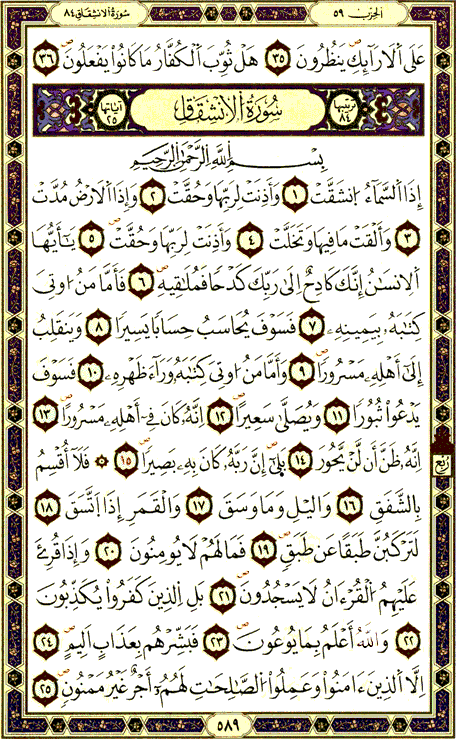 الحزب ٥٩ سورة الانشقاق ٨٤
عَلَى اَلَارَآئِكِ يَنظُرُونَ ٣٥ هَلْ ثُوِّبَ اَلْكُفَّارُ مَا كَانُواْ يَفْعَلُونَ ٣٦
ترتيبها ٨٤ سُورَةُ اَلِانشِقَاقِ آياتها ٢٥
بِسْمِ اِللَّهِ اِلرَّحْمَٰنِ اِلرَّحِيمِ
إِذَا اَلسَّمَآءُ اُ۪نشَقَّتْ ١ وَأَذِنَتْ لِرَبِّهَا وَحُقَّتْ ٢ وَإِذَا اَلَارْضُ مُدَّتْ
٣ وَأَلْقَتْ مَا فِيهَا وَتَخَلَّتْ ٤ وَأَذِنَتْ لِرَبِّهَا وَحُقَّتْ ٥ يَٰٓأَيُّهَا
اَلِانسَٰنُ إِنَّكَ كَادِحٌ اِلَىٰ رَبِّكَ كَدْحًا فَمُلَٰقِيهِ ٦ فَأَمَّا مَنُ ا۟وتِيَ
كِتَٰبَهُۥ بِيَمِينِهِۦ ٧ فَسَوْفَ يُحَاسَبُ حِسَابًا يَسِيرًا ٨ وَيَنقَلِبُ
إِلَىٰٓ أَهْلِهِۦ مَسْرُورًا ٩ وَأَمَّا مَنُ ا۟وتِيَ كِتَٰبَهُۥ وَرَآءَ ظَهْرِهِۦ ١٠ فَسَوْفَ
يَدْعُواْ ثُبُورًا ١١ وَيُصَلَّىٰ سَعِيرًا ١٢ اِنَّهُۥ كَانَ فِےٓ أَهْلِهِۦ مَسْرُورًا ١٣
اِنَّهُۥ ظَنَّ أَن لَّنْ يَّحُورَ ١٤ بَلَىٰٓ إِنَّ رَبَّهُۥ كَانَ بِهِۦ بَصِيرًا ١٥ ۞ فَلَآ أُقْسِمُ
ربع
بِالشَّفَقِ ١٦ وَالَّيْلِ وَمَا وَسَقَ ١٧ وَالْقَمَرِ إِذَا اَتَّسَقَ ١٨
لَتَرْكَبُنَّ طَبَقًا عَن طَبَقٍ ١٩ فَمَا لَهُمْ لَا يُومِنُونَ ٢٠ وَإِذَا قُرِئَ
عَلَيْهِمُ اُلْقُرْءَانُ لَا يَسْجُدُونَ ٢١ بَلِ اِلذِينَ كَفَرُواْ يُكَذِّبُونَ
٢٢ وَاللَّهُ أَعْلَمُ بِمَا يُوعُونَ ٢٣ فَبَشِّرْهُم بِعَذَابٍ اَلِيمٍ ٢٤
اِلَّا اَلذِينَ ءَامَنُواْ وَعَمِلُواْ اُلصَّٰلِحَٰتِ لَهُمُۥٓ أَجْرٌ غَيْرُ مَمْنُونٍ ٢٥
٥٨٩